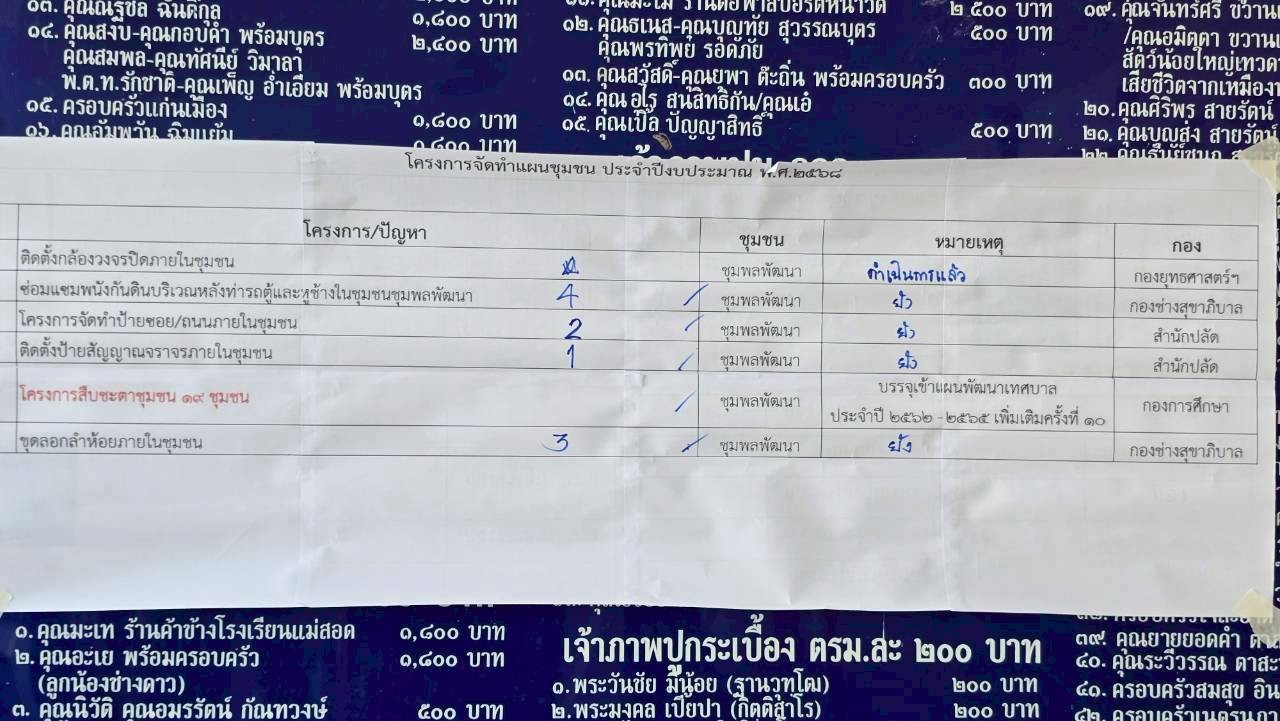 ๑๓. คุณณัฐชล ฉันดิกุล
๑๔. คุณสงบ-คุณกอบคำ พร้อมบุตร ๒,๔๐๐ บาท
คุณสมพล-คุณทัศนีย์ วิมาลา
พ.ต.ท.รักชาติ-คุณเพ็ญ อ่ำเอียม พร้อมบุตร
๑๕. ครอบครัวแก่นเมือง ๑,๘๐๐ บาท
๑๖. คุณอัมพวัน ฉิมแย้ม ๑,๘๐๐ บาท
๑,๘๐๐ บาท
๒ ๕๐๐ บาท
๑๒. คุณธเนส-คุณบุญทัย สุวรรณบุตร ๕๐๐ บาท
คุณพรทิพย์ รอดภัย
๑๓. คุณสวัสดิ์-คุณยุพา ต๊ะถิ่น พร้อมครอบครัว ๓๐๐ บาท
๑๔. คุณอุไร สนสิทธิ์กัน/คุณเอ๋
๑๕. คุณเปิ้ล ปัญญาสิทธิ์ ๕๐๐ บาท
๑๙. คุณจันทร์ศรี
/คุณอมิตตา
สัตว์น้อยใหญ่
เสียชีวิตจากเหมือง
๒๐. คุณศิริพร สายรัตน์
๒๑. คุณบุญส่ง สายรัตน์
โครงการจัดทำแผนชุมชน ประจำปีงบประมาณ พ.ศ.๒๕๖๘
โครงการ/ปัญหา ชุมชน หมายเหตุ กอง
ติดตั้งกล้องวงจรปิดภายในชุมชน ชุมพลพัฒนา ดำเนินการแล้ว กองยุทธศาสตร์ฯ
ซ่อมแซมพนังกันดินบริเวณหลังท่ารถตู้และหูช้างในชุมชนชุมพลพัฒนา 4 / ชุมพลพัฒนา ยัง กองช่างสุขาภิบาล
โครงการจัดทำป้ายซอย/ถนนภายในชุมชน 2 / ชุมพลพัฒนา ยัง สำนักปลัด
ติดตั้งป้ายสัญญาณจราจรภายในชุมชน 1 / ชุมพลพัฒนา ยัง สำนักปลัด
โครงการสืบชะตาชุมชน ๑๙ ชุมชน / ชุมพลพัฒนา บรรจุเข้าแผนพัฒนาเทศบาล กองการศึกษา
ประจำปี ๒๕๖๒ - ๒๕๖๕ เพิ่มเติมครั้งที่ ๑๐
ขุดลอกลำห้อยภายในชุมชน 3 / ชุมพลพัฒนา ยัง กองช่างสุขาภิบาล
๑. คุณมะเท ร้านค้าข้างโรงเรียนแม่สอด ๑,๘๐๐ บาท
๒. คุณอะเย พร้อมครอบครัว ๑,๘๐๐ บาท
(ลูกน้องช่างดาว)
๓. คุณนิวัติ คุณอมรรัตน์ กัณทวงษ์ ๕๐๐ บาท
เจ้าภาพปูกระเบื้อง ตรม.ละ ๒๐๐ บาท
๑. พระวันชัย มีน้อย (ฐานวุฑโฒ) ๒๐๐ บาท
๒. พระมงคล เปียปา (กิตติสาโร) ๒๐๐ บาท
๓๙. คุณยายยอดคำ
๔๐. คุณระวีวรรณ
๔๑. ครอบครัวสมสุข
๔๒. ครอบครัว